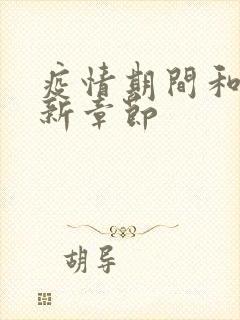 疫情期間和
新章節
胡导